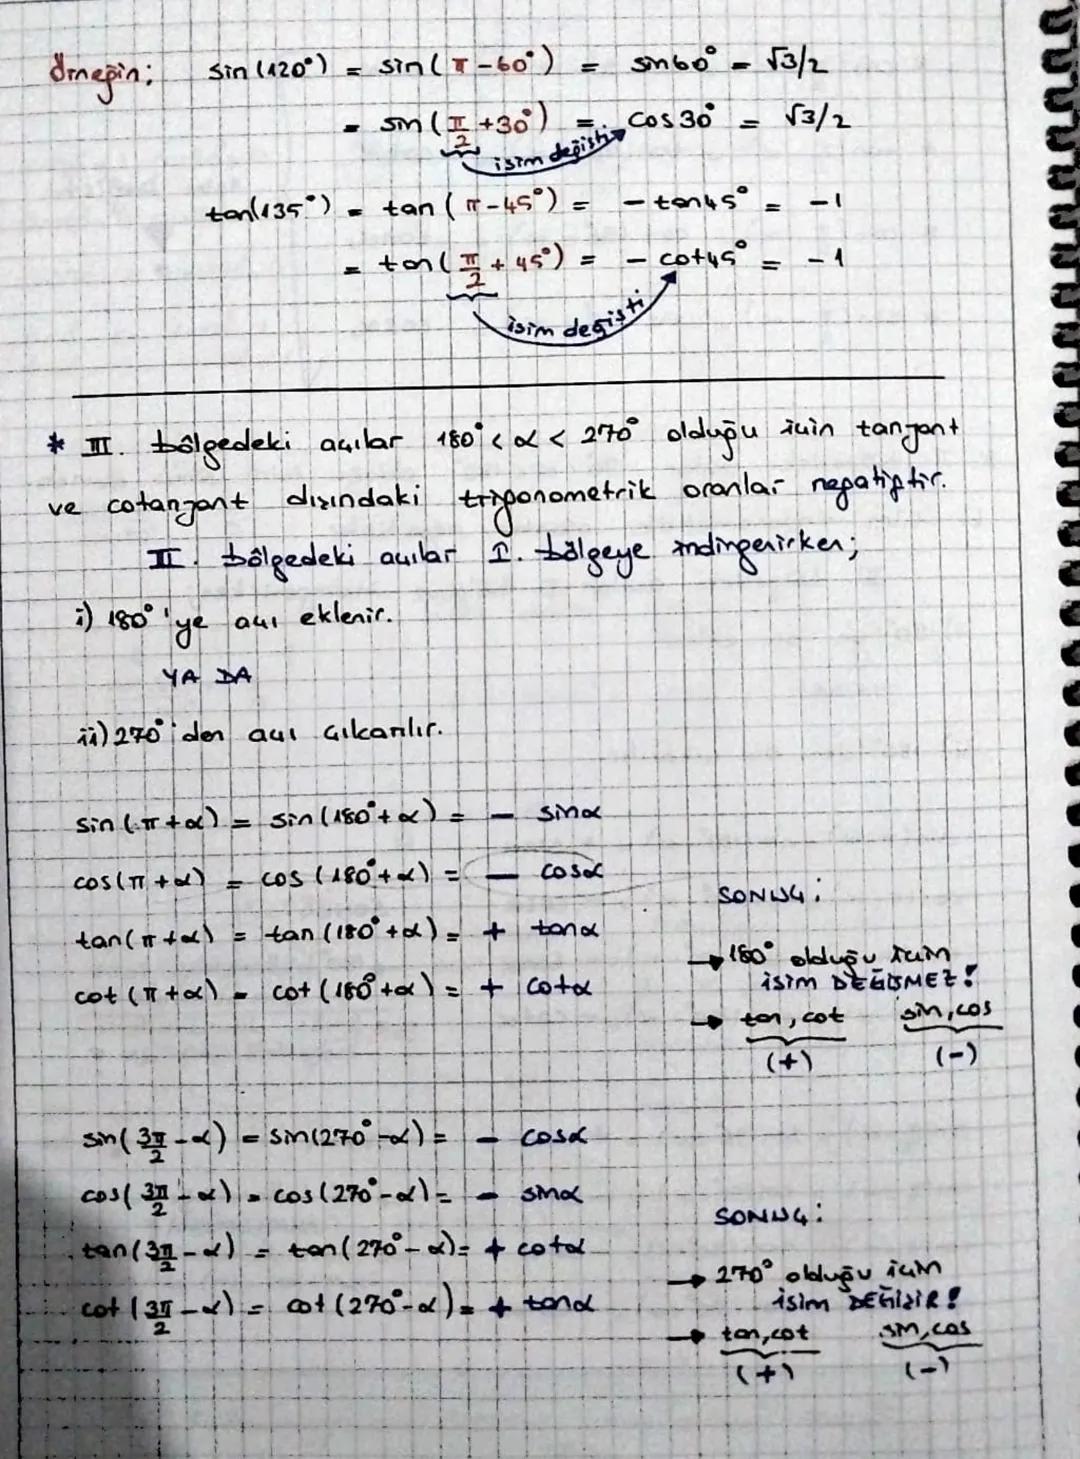 Örneğin; sin(120°) = sin(π-60°) = sin60° = √3/2
= sin(π/2 +30°) = cos30° = √3/2
isim değişti
tan(135°) = tan(π-45°) = - tan45° = -1
= tan(π/2 + 45°) = - cot45° = -1
isim değişti
* III. bölgedeki açılar 180° < α < 270° olduğu için tanjant
ve cotanjant dışındaki trigonometrik oranlar negatiftir.
III. bölgedeki açılar I. bölgeye indirgenirken;
i) 180°'ye açı eklenir.
YA DA
ii) 270°'den açı çıkarılır.
sin(π+α) = sin(180°+α) = - sinα
cos(π+α) = cos(180°+α) = - cosα
tan(π+α) = tan(180°+α) = + tanα
cot(π+α) = cot(180°+α) = + cotα
SONUÇ:
→ 180° olduğu için
isim DEĞİŞMEZ!
→ tan, cot sin, cos
(+) (-)
sin(3π/2 -α) = sin(270°-α) = - cosα
cos(3π/2 -α) = cos(270°-α) = - sinα
tan(3π/2 -α) = tan(270°-α) = + cotα
cot(3π/2 -α) = cot(270°-α) = + tanα
SONUÇ:
→ 270° olduğu için
isim DEĞİŞİR!
→ tan, cot sin, cos
(+) (-)